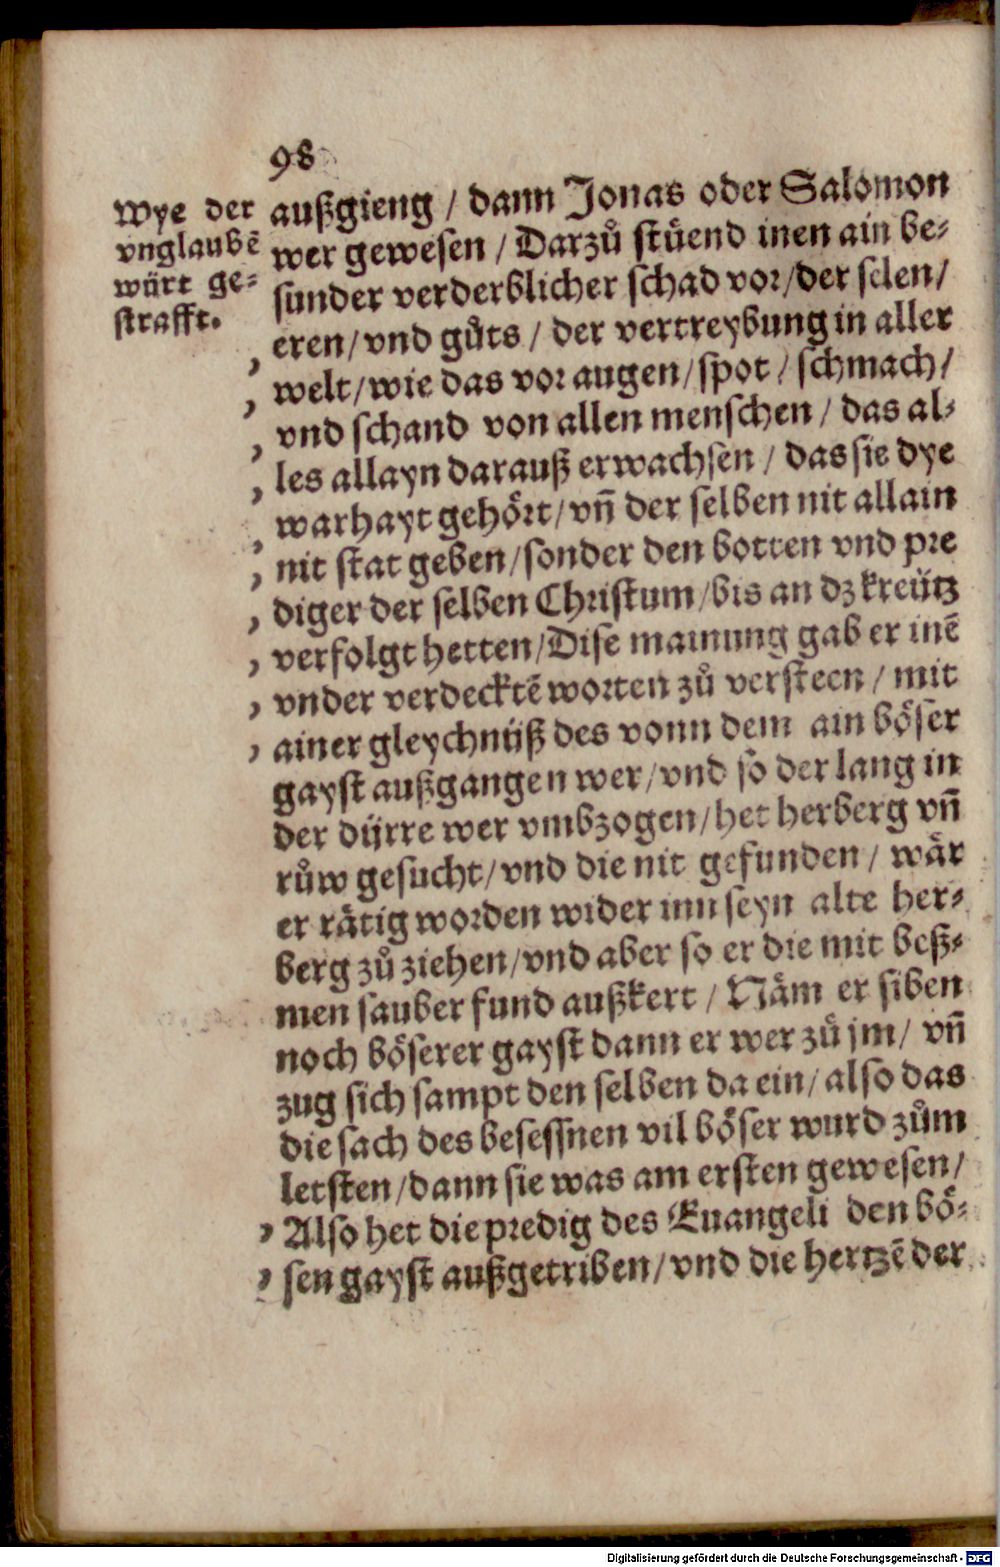 98
Wye der
vnglaubē
würt ge⸗
strafft.
außgieng / dann Jonas oder Salomon
wer gewesen / Darzů stüend inen ain be⸗
sunder verderblicher schad vor / der selen /
eren / vnd gůts / der vertreybung in aller
welt / wie das vor augen / spot / schmach /
vnd schand von allen menschen / das al⸗
les allayn darauß erwachsen / das sie dye
warhayt gehört / vn̄ der selben nit allain
nit stat geben / sonder den botten vnd pre
diger der selben Christum / bis an dz kreütz
verfolgt hetten / Dise mainung gab er inē
vnder verdecktē worten zů versteen / mit
ainer gleychnüß des vonn dem ain böser
gayst außgangen wer / vnd so der lang in
der dürre wer vmbzogen / het herberg vn̄
růw gesucht / vnd die nit gefunden / wår
er råtig worden wider inn seyn alte her⸗
berg zů ziehen / vnd aber so er die mit beß⸗
men sauber fund außkert / Näm er siben
noch böserer gayst dann er wer zů jm / vn̄
zug sich sampt den selben da ein / also das
die sach des besessnen vil böser wurd zům
letsten / dann sie was am ersten gewesen /
Also het die predig des Euangeli den bö⸗
sen gayst außgetriben / vnd die hertzē der
Digitalisierung gefördert durch die Deutsche Forschungsgemeinschaft - DFG